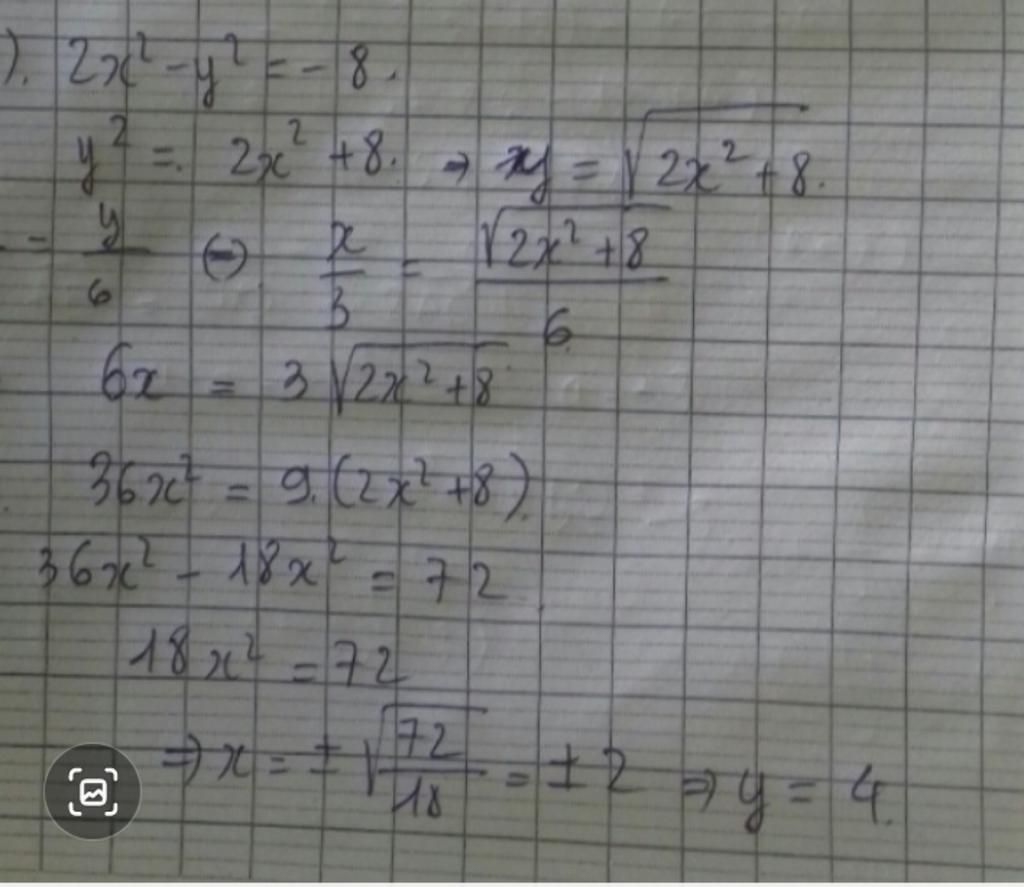 ). 2x² - y² = - 8.
y² = 2x² + 8. → xy = √(2x² + 8).
- = y/6 (=) x/3 = √(2x² + 8)/6.
6x = 3√(2x² + 8)
36x² = 9.(2x² + 8).
36x² - 18x² = 72
18x² = 72
⇒ x = ± √(72/18) = ± 2 ⇒ y = 4.